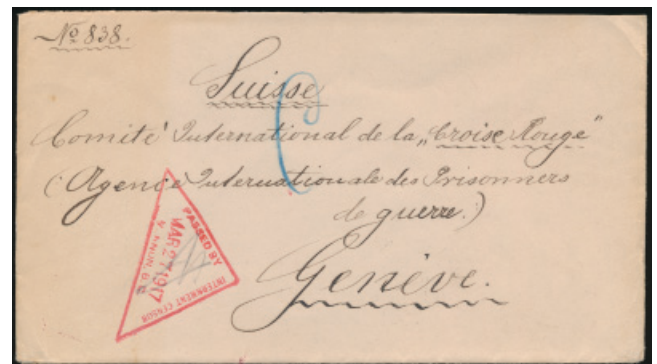 No 838.
Suisse
Comité International de la „Croise Rouge"
(Agence Internationale des Prisonners
de guerre.)
Genève.
PASSED BY
MAR 27 1917
VERNON, B.C.
INTERNMENT CENSOR